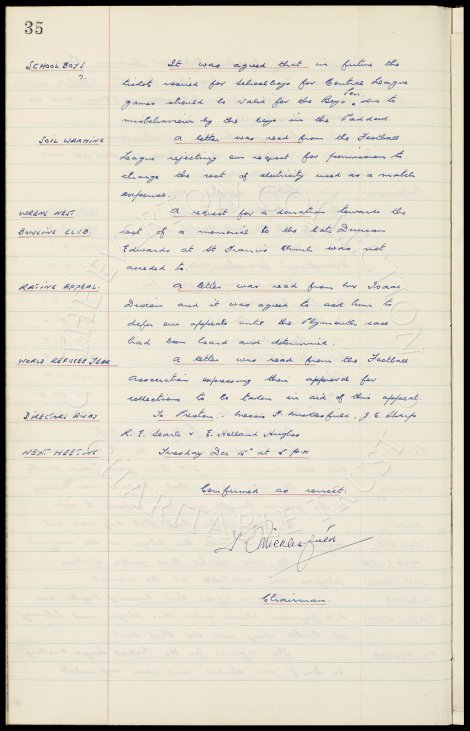 35
SCHOOLBOYS
?
It was agreed that in future the
tickets issued for schoolboys for Central League
games should be valid for the Boys Pen, due to
misbehaviour by the boys in the Paddock.
SOIL WARMING
A letter was read from the Football
League rejecting our request for permission to
charge the cost of electricity used as a match
expense.
WRENS NEST
BOWLING CLUB.
A request for a donation towards the
cost of a memorial to the late Duncan
Edwards at St Francis Church was not
acceded to.
RATING APPEAL.
A letter was read from Mr Isaac
and it was agreed to ask him to
defer our appeals until the Plymouth case
had been heard and determined.
WORLD REFUGEE YEAR
A letter was read from the Football
Association expressing their approval for
collections to be taken in aid of this appeal.
DIRECTORS AWAY
To Preston:- Messrs T. Micklefield, J. E. Sharp
R. E. Searle & E. Holland Hughes
NEXT MEETING
Tuesday Dec 15th at 5 PM
Confirmed as correct.
T Micklefield
Chairman.
THE EVERTON COLLECTION
CHARITABLE TRUST